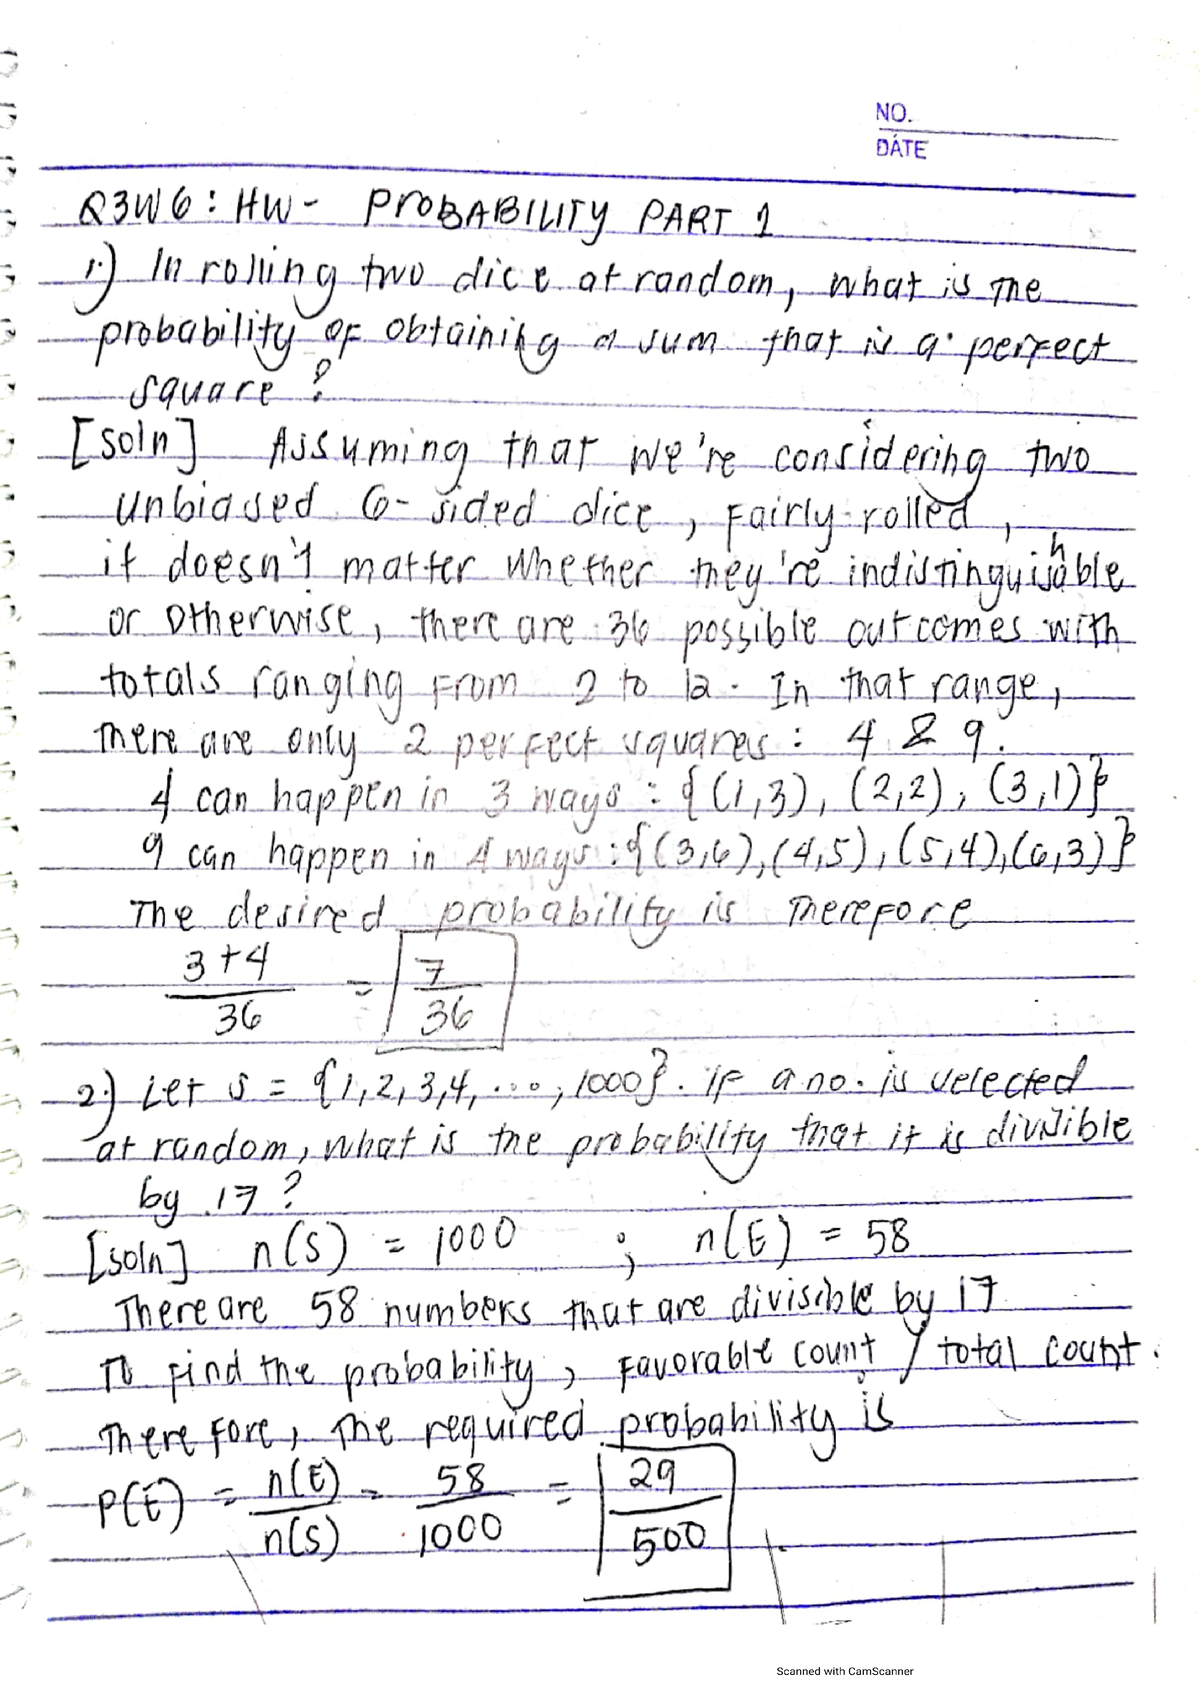 NO.
DATE
Q3W6: HW- PROBABILITY PART 1
1.) In rolling two dice at random, what is the
probability of obtaining a sum that is a perfect
square?
[soln] Assuming that we're considering two
unbiased 6-sided dice, fairly rolled,
it doesn't matter whether they're indistinguishable
or otherwise, there are 36 possible outcomes with
totals ranging from 2 to 12. In that range,
there are only 2 perfect squares: 4 & 9.
4 can happen in 3 ways: {(1,3), (2,2), (3,1)}
9 can happen in 4 ways: {(3,6), (4,5), (5,4), (6,3)}
The desired probability is therefore
3+4/36 = 7/36
2.) Let S = {1,2,3,4, ..., 1000}. If a no. is selected
at random, what is the probability that it is divisible
by 17?
[soln] n(S) = 1000 ; n(E) = 58
There are 58 numbers that are divisible by 17
To find the probability, favorable count / total count.
Therefore, the required probability is
P(E) = n(E)/n(S) = 58/1000 = 29/500
Scanned with CamScanner